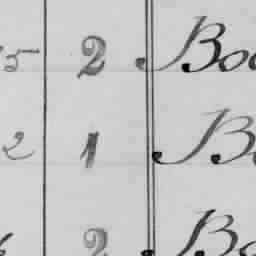 5 2 Boo
2 1 Bo
2 Bo